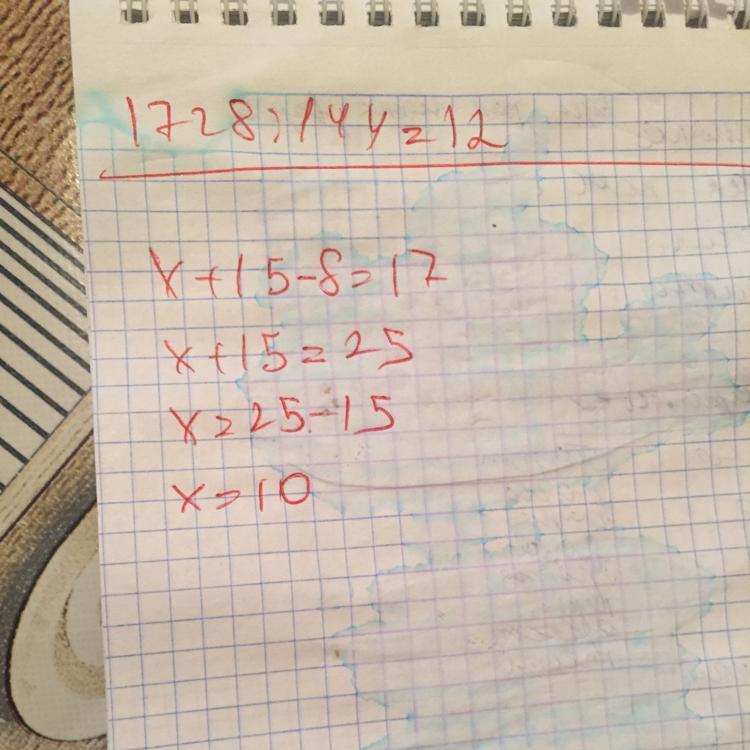 1728:144=12
x+15-8=17
x+15=25
x=25-15
x=10